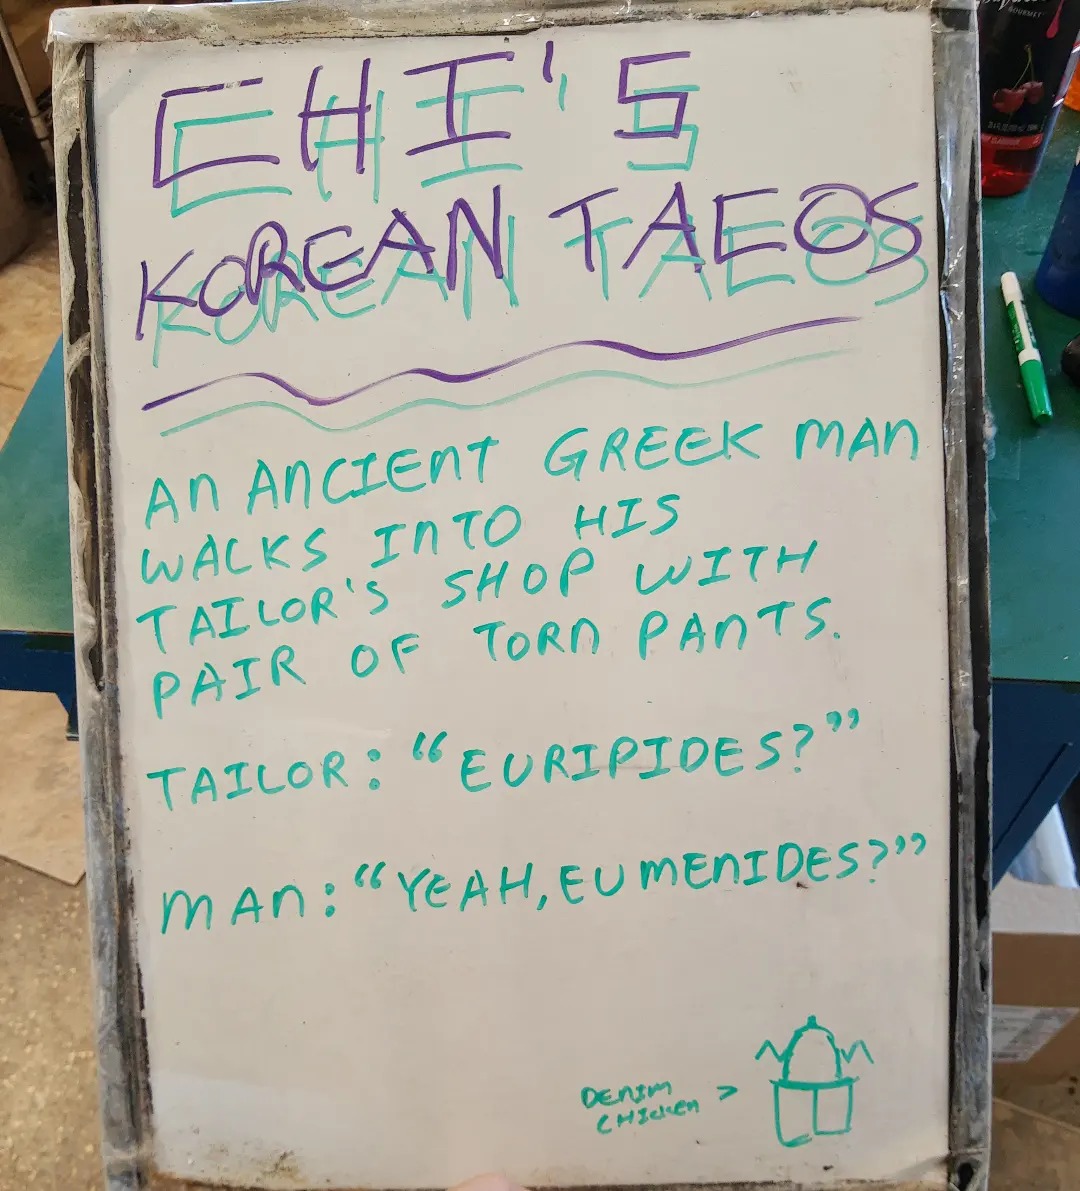 CHI'S
KOREAN TACOS
AN ANCIENT GREEK MAN
WALKS INTO HIS
TAILOR'S SHOP WITH
PAIR OF TORN PANTS.
TAILOR: “EURIPIDES?”
MAN: “YEAH, EUMENIDES?”
DENIM
CHICKEN >
GOURMET